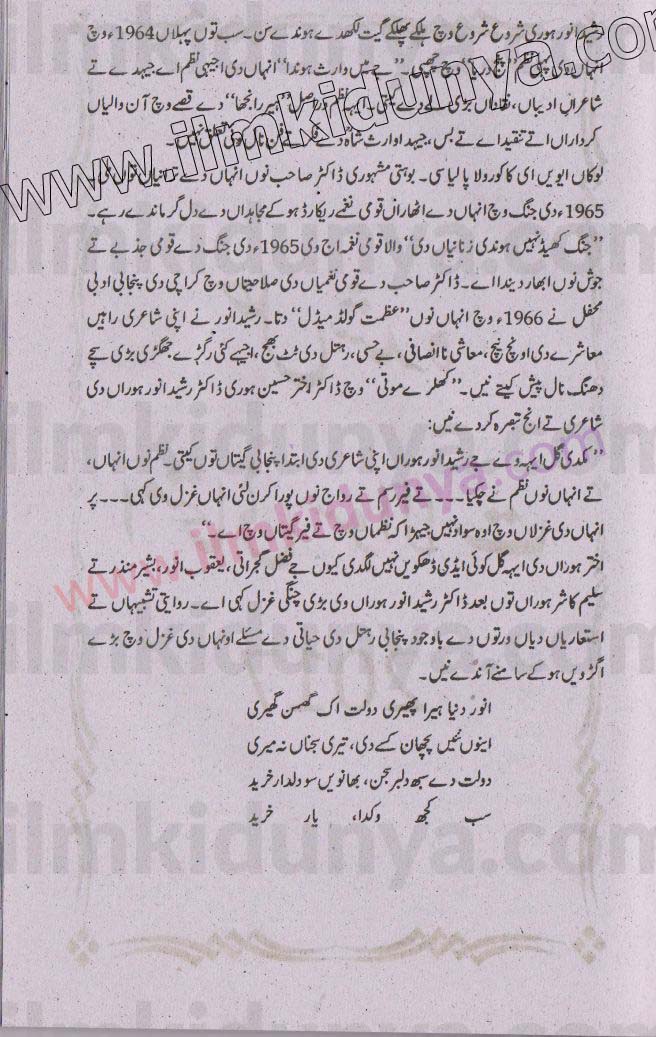 رشید انور ہوری شروع شروع وچ ہلکے پھلکے گیت لکھدے ہوندے سن۔ سب توں پہلاں 1964ء وچ
انہاں دی پہلی نظم ”پنج دریا“ وچ چھپی۔ ”جے میں وارث ہوندا“ انہاں دی اجیہی نظم اے جیہدے تے
شاعراں ادیباں، نقاداں بڑی دراصل ”ہیر رانجھا“ دے قصے وچ آن والیاں
کرداراں اتے تنقید اے تے بس، جیہدا وارث شاہ دے فن نال کوئی تعلق نہیں۔
لوکاں ایویں ای کاکورولا پا لیا سی۔ بوہتی مشہوری ڈاکٹر صاحب نوں انہاں دے
1965ء دی جنگ وچ انہاں دے اٹھاراں قومی نغمے ریکارڈ ہو کے مجاہداں دے دل گرماندے رہے۔
”جنگ کھیڈ نہیں ہوندی زنانیاں دی“ والا قومی نغمہ اج وی 1965ء دی جنگ دے قومی جذبے تے
جوش نوں ابھار دیندا اے۔ ڈاکٹر صاحب دے قومی نغمیاں دی صلاحیتاں وچ کراچی دی پنجابی ادبی
محفل نے 1966ء وچ انہاں نوں ”عظمت گولڈ میڈل“ دتا۔ رشید انور نے اپنی شاعری راہیں
معاشرے دی اونچ نیچ، معاشی ناانصافی، بے حسی، رہتل دی ٹٹ بھج، اجیہے کئی رگڑے جھگڑی بڑی سچے
ڈھنگ نال پیش کیتے نیں۔ ”کھلرے موتی“ وچ ڈاکٹر اختر حسین ہوری ڈاکٹر رشید انور ہوراں دی
شاعری تے انج تبصرہ کردے نیں:
”مکدی گل ایہہ وے جے رشید انور ہوراں اپنی شاعری دی ابتدا پنجابی گیتاں توں کیتی۔ نظم نوں انہاں،
تے انہاں نوں نظم نے چکیا۔۔۔۔ تے فیر رسم تے رواج نوں پورا کرن لئی انہاں غزل وی کہی۔۔۔۔ پر
انہاں دی غزلاں وچ اوہ سواد نہیں جیہڑا کہ نظماں وچ تے فیر گیتاں وچ اے۔“
اختر ہوراں دی ایہہ گل کوئی ایڈی ڈھکویں نہیں لگدی کیوں جے فضل گجراتی، یعقوب انور، بشیر منذر تے
سلیم کاشر ہوراں توں بعد ڈاکٹر رشید انور ہوراں وی بڑی چنگی غزل کہی اے۔ روایتی تشبیہاں تے
استعاریاں دیاں ورتوں دے باوجود پنجابی رہتل دی حیاتی دے مسئلے اونہاں دی غزل وچ بڑے
اگڑویں ہو کے سامنے آندے نیں۔
انور دنیا ہیرا پھیری دولت اک گھمن گھیری
اینوں نئیں پچھان کسے دی، تیری سجناں نہ میری
دولت دے سبھ دلبر سجن، بھانویں سو دلدار خرید
سب کجھ وکدا، یار خرید
www.ilmkidunya.com
www.ilmkidunya.com
ilmkidunya.com
ilmkidunya.com
ilmkidunya.com
ilmkidunya.com